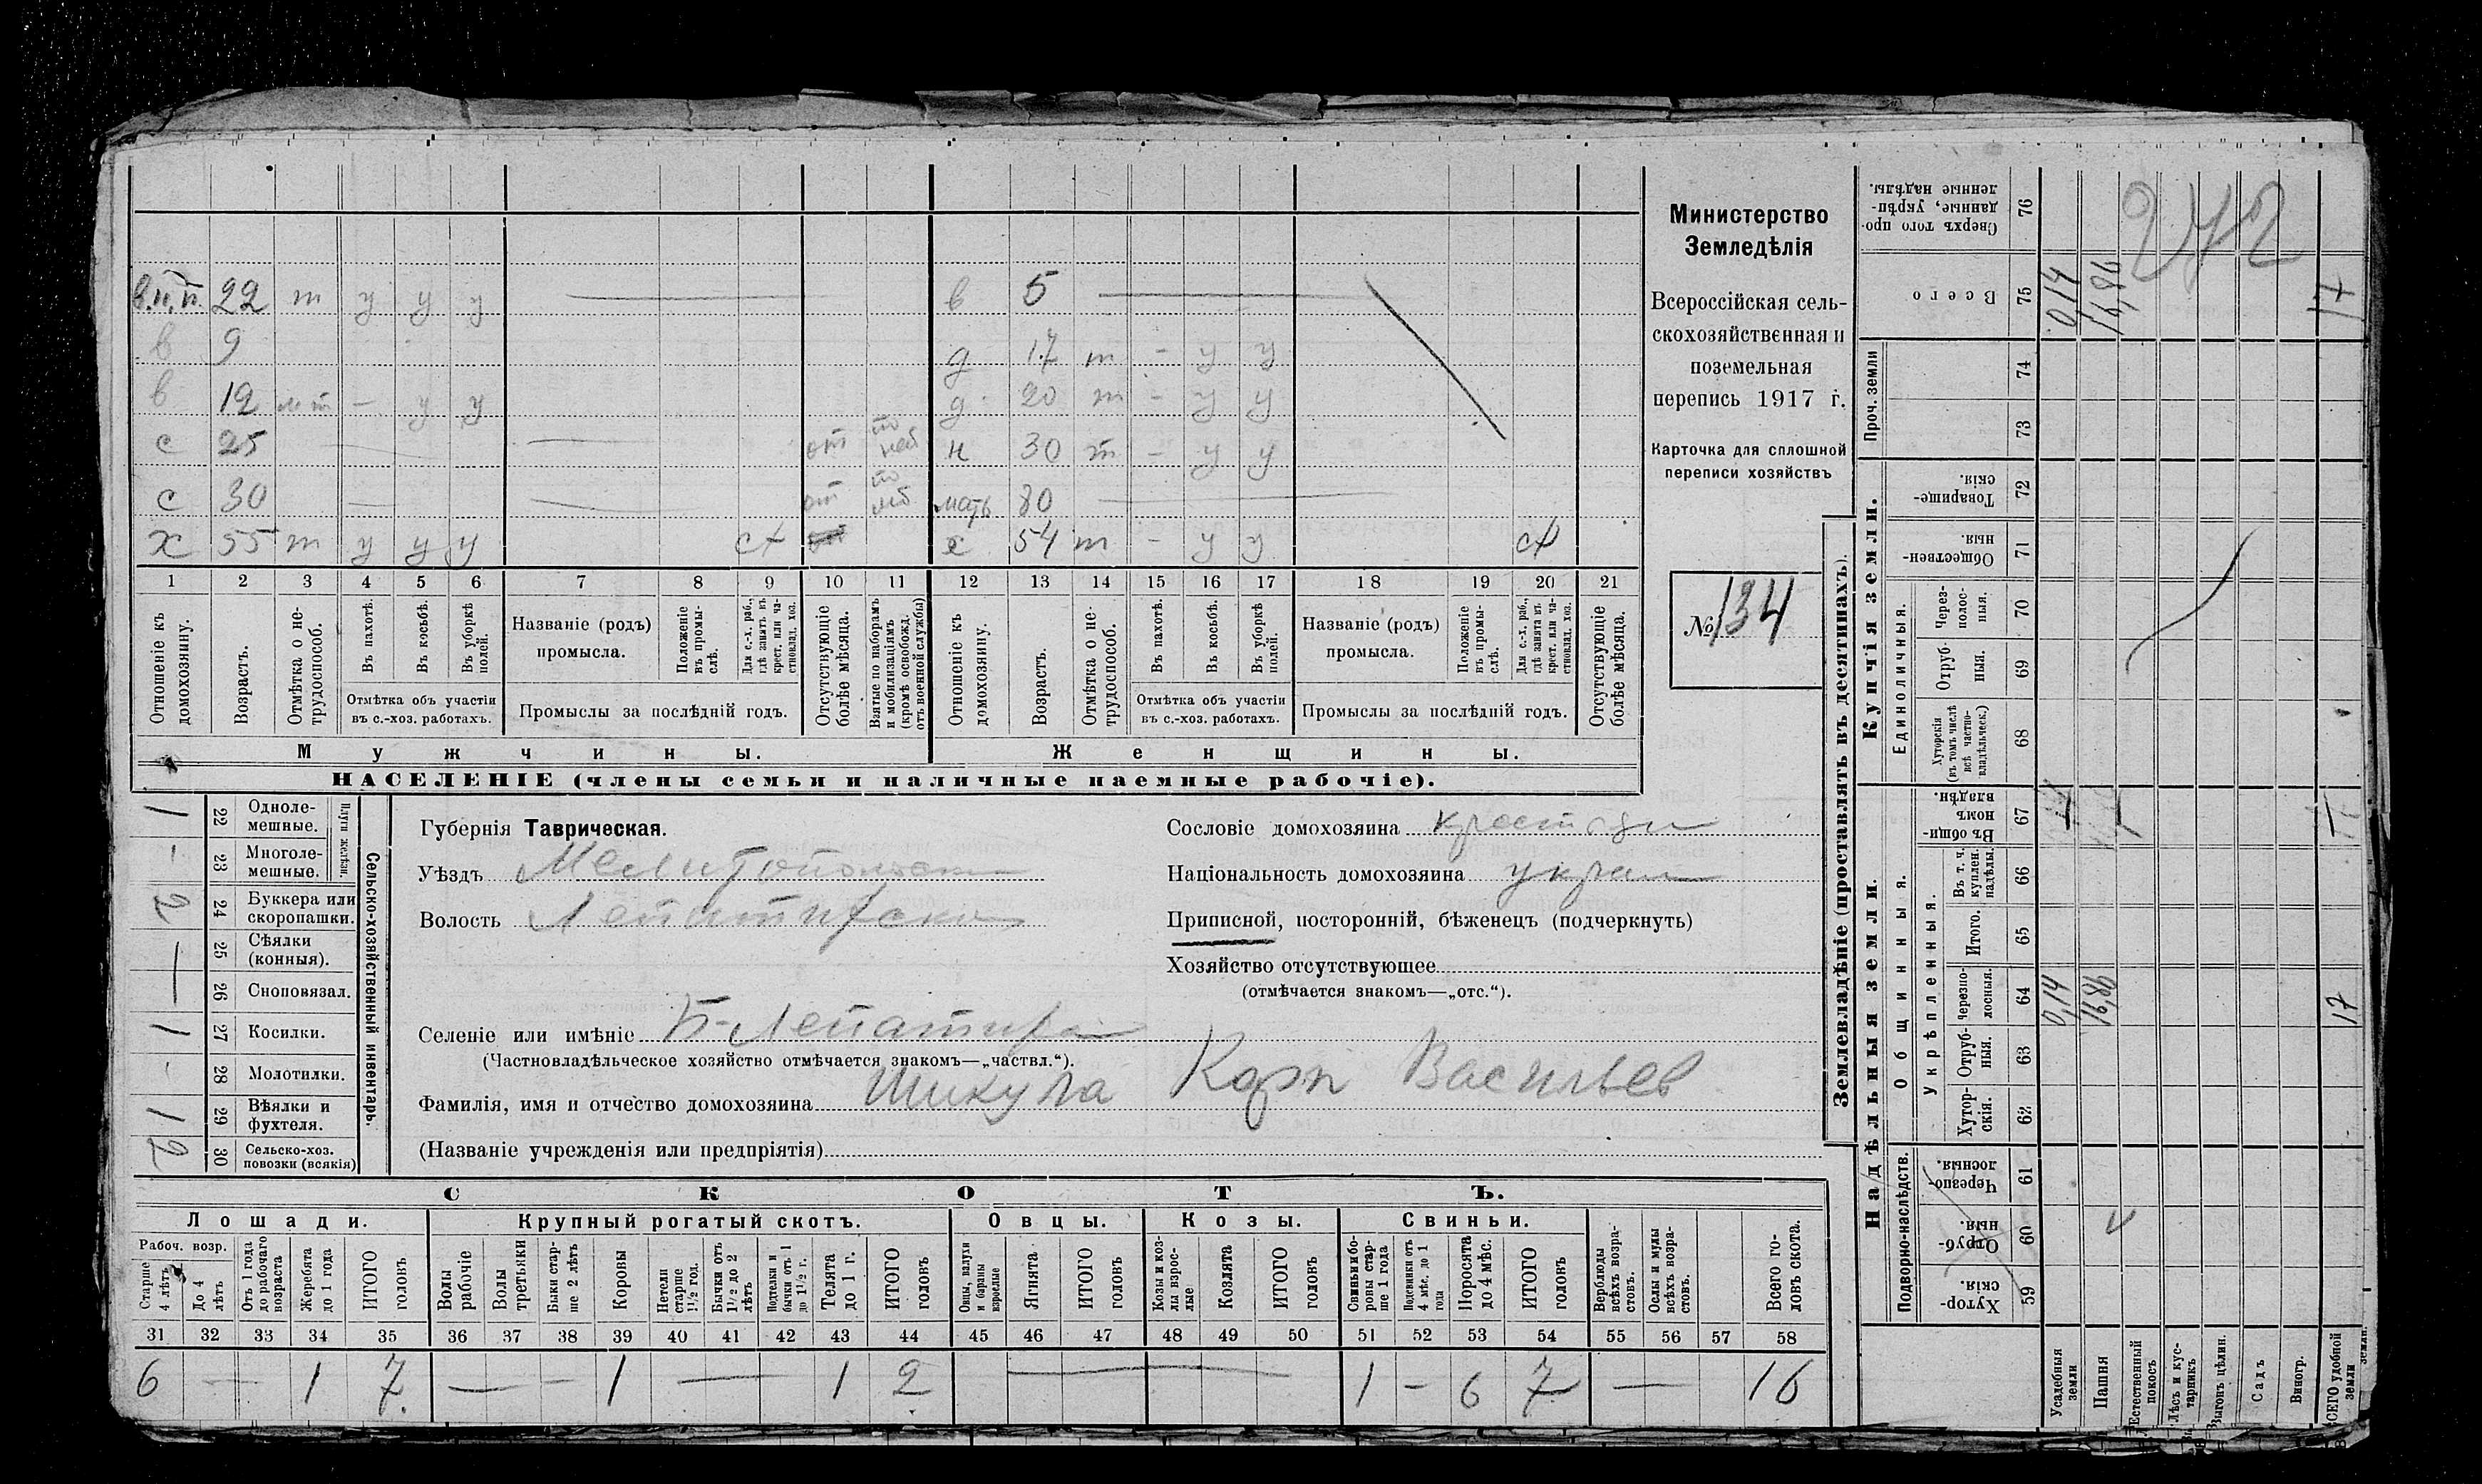 в.н.п. 22 т у у у — в 5 —
в 9 д 17 т - у у
в 12 пт - у у д 20 т - у у
с 25 — — от по моб н 30 т - у у
с 30 — — от по моб мать 80 —
х 55 т у у у сх х 54 т - у у сх
1 2 3 4 5 6 7 8 9 10 11 12 13 14 15 16 17 18 19 20 21
Отношеніе къ домохозяину.
Возрастъ.
Отмѣтка о нетрудоспособ.
Въ пахотѣ.
Въ косьбѣ.
Въ уборкѣ полей.
Отмѣтка объ участіи въ с.-хоз. работахъ.
Названіе (родъ) промысла.
Положеніе въ промыслѣ.
Для с.-х. раб., гдѣ занятъ въ крест. или частновлад. хоз.
Промыслы за послѣдній годъ.
Отсутствующіе болѣе мѣсяца.
Взятые по наборамъ и мобилизаціямъ (кромѣ освобожд. отъ военной службы)
Отношеніе къ домохозяину.
Возрастъ.
Отмѣтка о нетрудоспособ.
Въ пахотѣ.
Въ косьбѣ.
Въ уборкѣ полей.
Отмѣтка объ участіи въ с.-хоз. работахъ.
Названіе (родъ) промысла.
Положеніе въ промыслѣ.
Для с.-х. раб., гдѣ занята въ крест. или частновлад. хоз.
Промыслы за послѣдній годъ.
Отсутствующіе болѣе мѣсяца.
Мужчины. Женщины.
НАСЕЛЕНІЕ (члены семьи и наличные наемные рабочіе).
Министерство
Земледѣлія
Всероссійская сель-
скохозяйственная и
поземельная
перепись 1917 г.
Карточка для сплошной
переписи хозяйствъ
№ 134
Сельско-хозяйственный инвентарь.
Плуги желѣзн.
1 22 Одноле-мешные.
- 23 Многоле-мешные.
2 24 Буккера или скоропашки.
— 25 Сѣялки (конныя).
— 26 Сноповязал.
1 27 Косилки.
- 28 Молотилки.
1 29 Вѣялки и фухтеля.
2 30 Сельско-хоз. повозки (всякія)
Губернія Таврическая.
Уѣздъ Мелитопольск
Волость Лепатихск
Селеніе или имѣніе Б-Лепатиха
(Частновладѣльческое хозяйство отмѣчается знакомъ—„частвл.“).
Фамилія, имя и отчество домохозяина Шикула Карп Васильев
(Названіе учрежденія или предпріятія)
Сословіе домохозяина крестьян
Національность домохозяина украин
Приписной, посторонній, бѣженецъ (подчеркнуть)
Хозяйство отсутствующее
(отмѣчается знакомъ—„отс.“).
СКОТЪ.
Лошади. Крупный рогатый скотъ. Овцы. Козы. Свиньи.
Рабоч. возр.
Старше 4 лѣтъ
До 4 лѣтъ
Отъ 1 года до рабочаго возраста
Жеребята до 1 года
ИТОГО головъ
Волы рабочіе
Волы третьяки
Быки старше 2 лѣтъ
Коровы
Нетели старше 1½ год.
Бычки отъ 1½ до 2 лѣтъ
Подтелки и бычки отъ 1 до 1½ г.
Телята до 1 г.
ИТОГО головъ
Овцы, валухи и бараны взрослые
Ягнята
ИТОГО головъ
Козы и козлы взрослые
Козлята
ИТОГО головъ
Свиньи и боровы старше 1 года
Подсвинки отъ 4 мѣс. до 1 года
Поросята до 4 мѣс.
ИТОГО головъ
Верблюды всѣхъ возрастовъ.
Ослы и мулы всѣхъ возрастовъ.
Всего головъ скота.
31 32 33 34 35 36 37 38 39 40 41 42 43 44 45 46 47 48 49 50 51 52 53 54 55 56 57 58
6 — 1 7. — — 1 — 1 2 — 1 - 6 7 — 16
Землевладѣніе (проставлять въ десятинахъ).
Купчія земли.
Надѣльныя земли.
Сверхъ того проданные, укрѣпленные надѣлы. 76
Всего 75 0,14 16,86 17
Проч. земли 74 73
Товарищескія. 72
Общественныя. 71
Единоличныя.
Черезполосныя. 70
Отрубныя. 69
Хуторскія (въ томъ числѣ всѣ частновладѣльческ.) 68
Общинныя.
Въ общинномъ владѣн. 67
Укрѣпленныя.
Въ т. ч. куплен. надѣлы. 66
Итого. 65
Черезполосныя. 64 0,14 16,86 17
Отрубныя. 63
Хуторскія. 62
Подворно-наслѣдств.
Черезполосныя. 61
Отрубныя. 60
Хуторскія. 59
Усадебныя земли
Пашня
Естественный покосъ
Лѣсъ и кустарникъ
Выгонъ цѣлин.
Садъ
Виногр.
ВСЕГО удобной земли